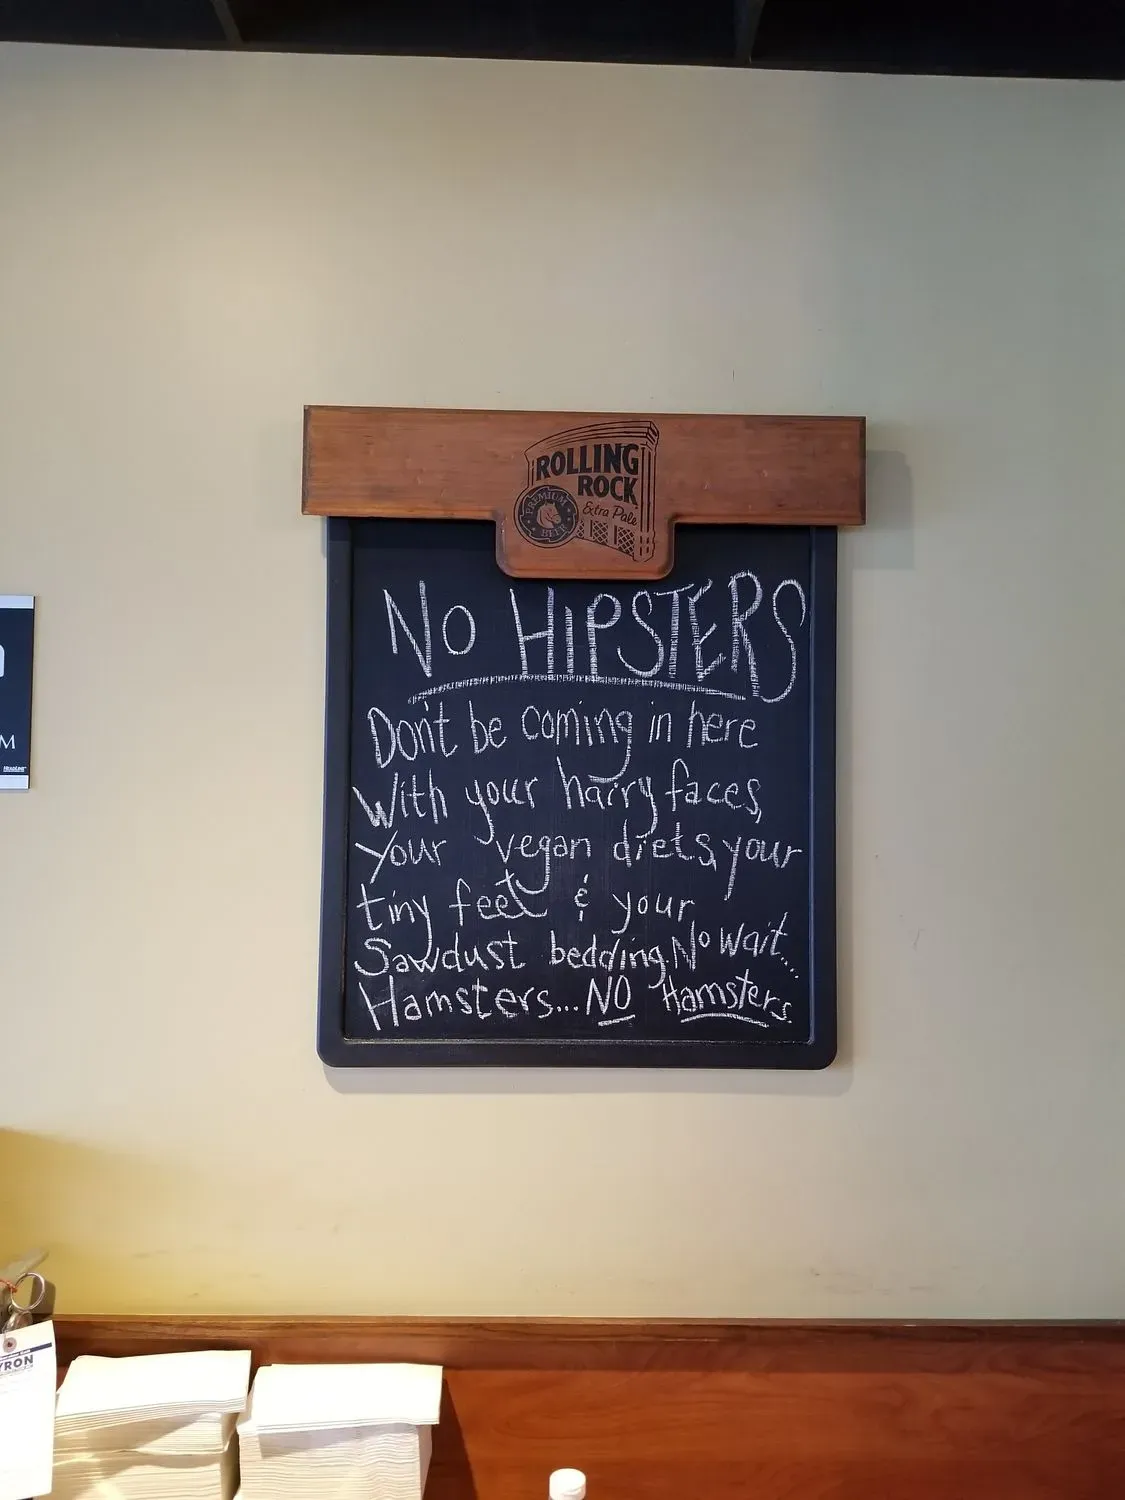 ROLLING
ROCK
Extra Pale
PREMIUM
BEER
No HiPSTERS
Don't be coming in here
With your hairy faces,
Your vegan diets, your
tiny feet & your
Sawdust bedding. No wait....
Hamsters... NO Hamsters.
M
HEADLINE
YRON